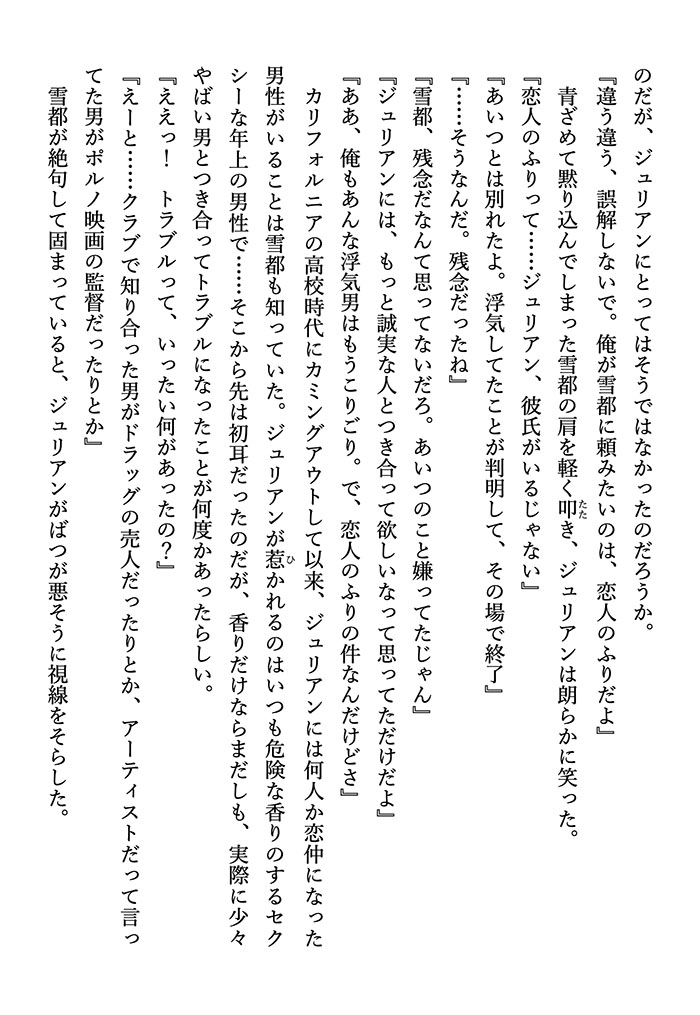 のだが、ジュリアンにとってはそうではなかったのだろうか。
『違う違う、誤解しないで。俺が雪都に頼みたいのは、恋人のふりだよ』
青ざめて黙り込んでしまった雪都の肩を軽く叩き、ジュリアンは朗らかに笑った。
たた
『恋人のふりって……ジュリアン、彼氏がいるじゃない』
『あいつとは別れたよ。浮気してたことが判明して、その場で終了』
『……そうなんだ。残念だったね』
『雪都、残念だなんて思ってないだろ。あいつのこと嫌ってたじゃん』
『ジュリアンには、もっと誠実な人とつき合って欲しいなって思ってただけだよ』
『ああ、俺もあんな浮気男はもうこりごり。で、恋人のふりの件なんだけどさ』
カリフォルニアの高校時代にカミングアウトして以来、ジュリアンには何人か恋仲になった
男性がいることは雪都も知っていた。ジュリアンが惹かれるのはいつも危険な香りのするセク
ひ
シーな年上の男性で……そこから先は初耳だったのだが、香りだけならまだしも、実際に少々
やばい男とつき合ってトラブルになったことが何度かあったらしい。
『ええっ！　トラブルって、いったい何があったの？』
『えーと……クラブで知り合った男がドラッグの売人だったりとか、アーティストだって言っ
てた男がポルノ映画の監督だったりとか』
雪都が絶句して固まっていると、ジュリアンがばつが悪そうに視線をそらした。